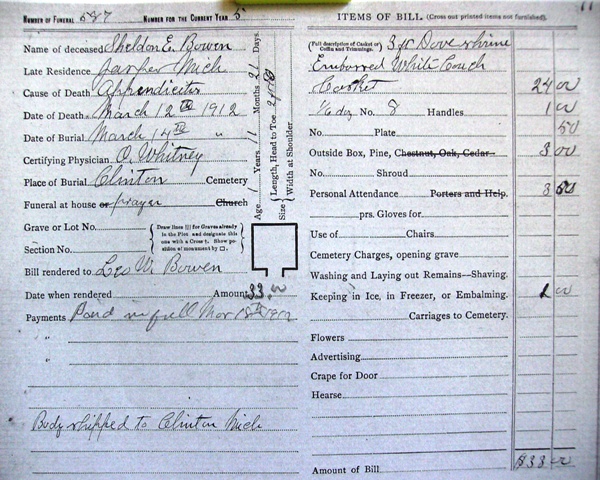 NUMBER OF FUNERAL 587 NUMBER FOR THE CURRENT YEAR 5
Name of deceased Sheldon E. Bowen
Late Residence Jasper Mich
Cause of Death Appendicitis
Date of Death March 12th 1912
Date of Burial March 14th "
Certifying Physician O. Whitney
Place of Burial Clinton Cemetery
Funeral at house or prayer Church
Grave or Lot No.
Section No.
Draw lines for Graves already in the Plot and designate this one with a Cross †. Show position of monument by □.
Bill rendered to Leo W. Bowen
Date when rendered Amount 33.00
Payments Paid in full Mar 18th 1912
"
"
Body shipped to Clinton Mich
Age Years 11 Months 21 Days.
Size Length, Head to Toe
Width at Shoulder
ITEMS OF BILL (Cross out printed items not furnished).
(Full description of Casket or Coffin and Trimmings. 3 Dove shrine
Embossed White Couch
Casket 24 00
1/6 doz No. 8 Handles 1 00
No. Plate 50
Outside Box, Pine, Chestnut, Oak, Cedar 3 00
No. Shroud
Personal Attendance Porters and Help. 3 50
prs. Gloves for
Use of Chairs
Cemetery Charges, opening grave
Washing and Laying out Remains—Shaving.
Keeping in Ice, in Freezer, or Embalming. 1 00
Carriages to Cemetery.
Flowers
Advertising
Crape for Door
Hearse
Amount of Bill $33 00